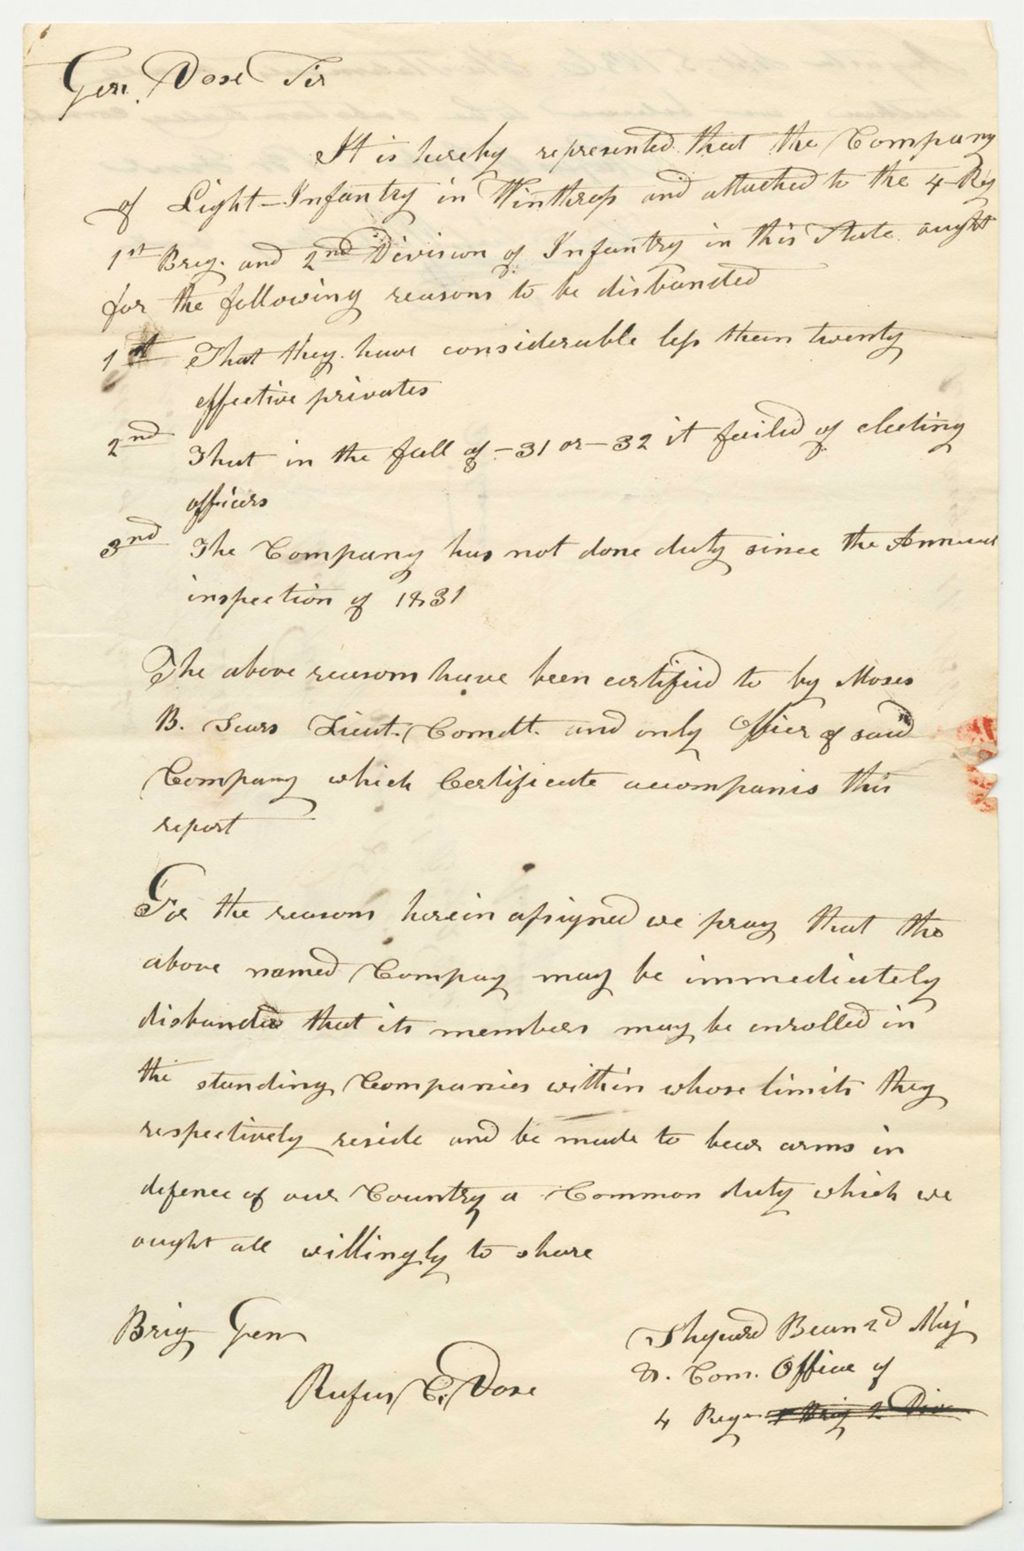 Gen. Vose Sir
It is hereby represented that the Company
of Light-Infantry in Winthrop and attached to the 4 Reg
1st Brig. and 2nd Division of Infantry in this State ought
for the following reasons to be disbanded
1st That they have considerable less than twenty
effective privates
2nd That in the fall of -31 or -32 it failed of electing
officers
3nd The Company has not done duty since the Annual
inspection of 1831
The above reasons have been certified to by Moses
B. Sears Lieut. Comdt. and only Officer of said
Company which Certificate accompanis this
report
For the reasons herein assigned we pray that the
above named Compay may be immediately
disbanded that its members may be enrolled in
the standing Companies within whose limits they
respectively reside and be made to bear arms in
defence of our Country a Common duty which we
ought all willingly to share
Brig Gen
Rufus C. Vose
Bean 2d Maj
&. Com. Office of
4 Reg 1 Brig 2 Div